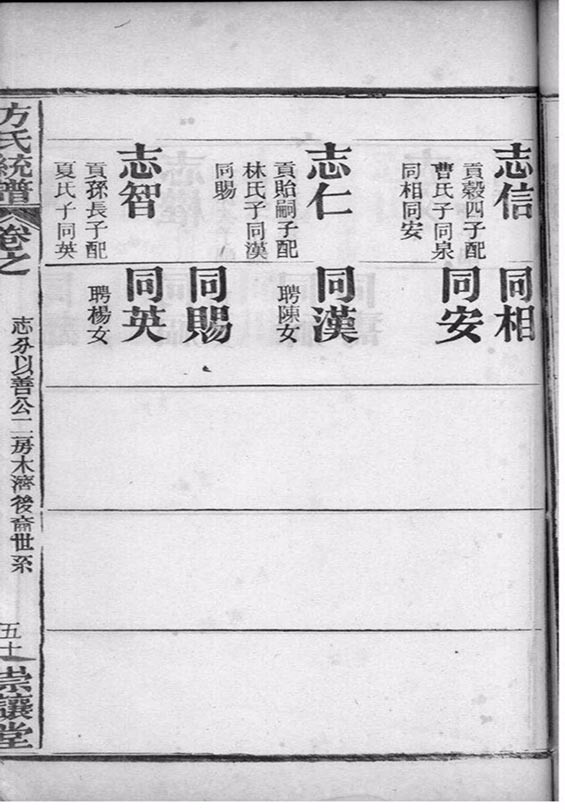 志信
貢穀四子配
曹氏子同泉
同相同安
志仁
貢貽嗣子配
林氏子同漢
同賜
志智
貢孫長子配
夏氏子同英
同相
同安
同漢
聘陳女
同賜
同英
聘楊女
方氏統譜
卷之
志分以善公二房木濟後裔世系
五十
崇讓堂